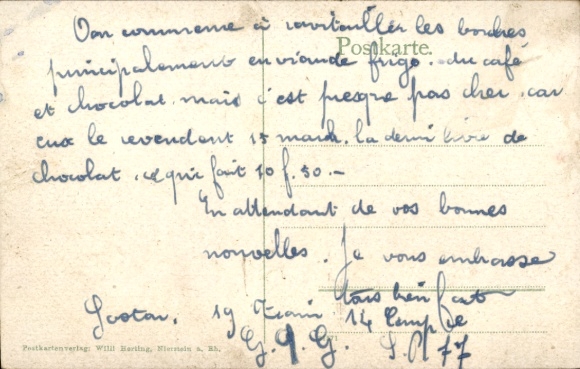 On commence à ravitailler les boches
Postkarte.
principalement en viande frigo. du café
et chocolat. mais c'est presque pas cher. car
eux le revendent 15 mark. la demi livre de
chocolat. ce qui fait 10 f. 50. -
En attendant de vos bonnes
nouvelles. Je vous embrasse
tous bien fort
19 Train 14 Comp
S. P. 77
Postkartenverlag: Willi Horting, Nierstein a. Rh.